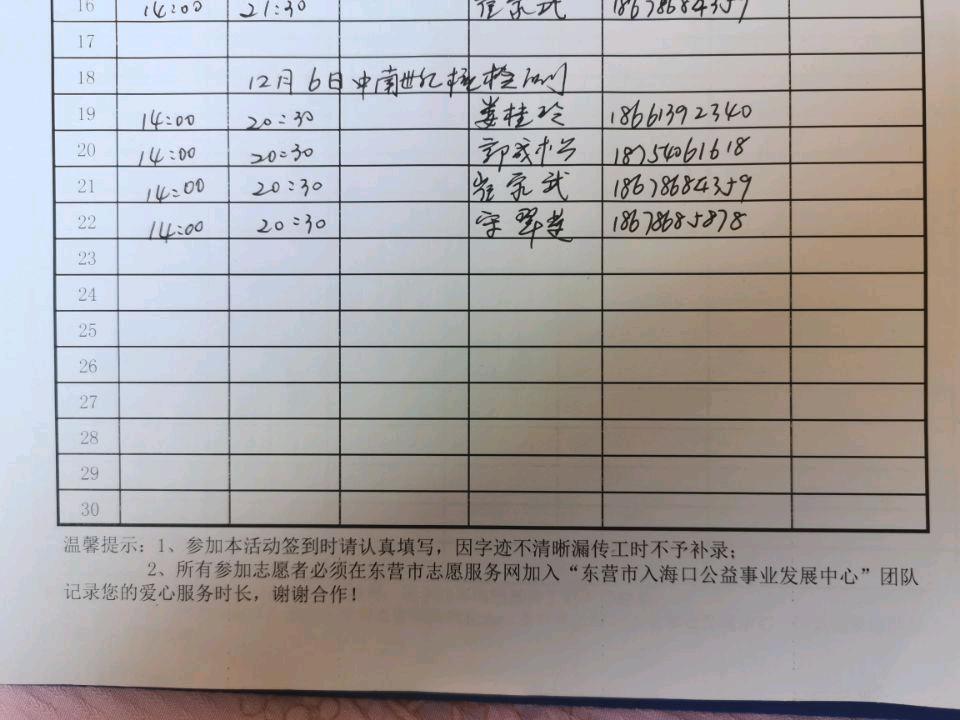 16 14:00 21:30 崔宗武 18678684359
17
18 12月6日中南世纪核检检测
19 14:00 20:30 娄桂玲 18661392340
20 14:00 20:30 郭成松 18754061618
21 14:00 20:30 崔宗武 18678684359
22 14:00 20:30 宋翠莲 18678685878
23
24
25
26
27
28
29
30
温馨提示：1、参加本活动签到时请认真填写，因字迹不清晰漏传工时不予补录；
2、所有参加志愿者必须在东营市志愿服务网加入“东营市入海口公益事业发展中心”团队
记录您的爱心服务时长，谢谢合作！